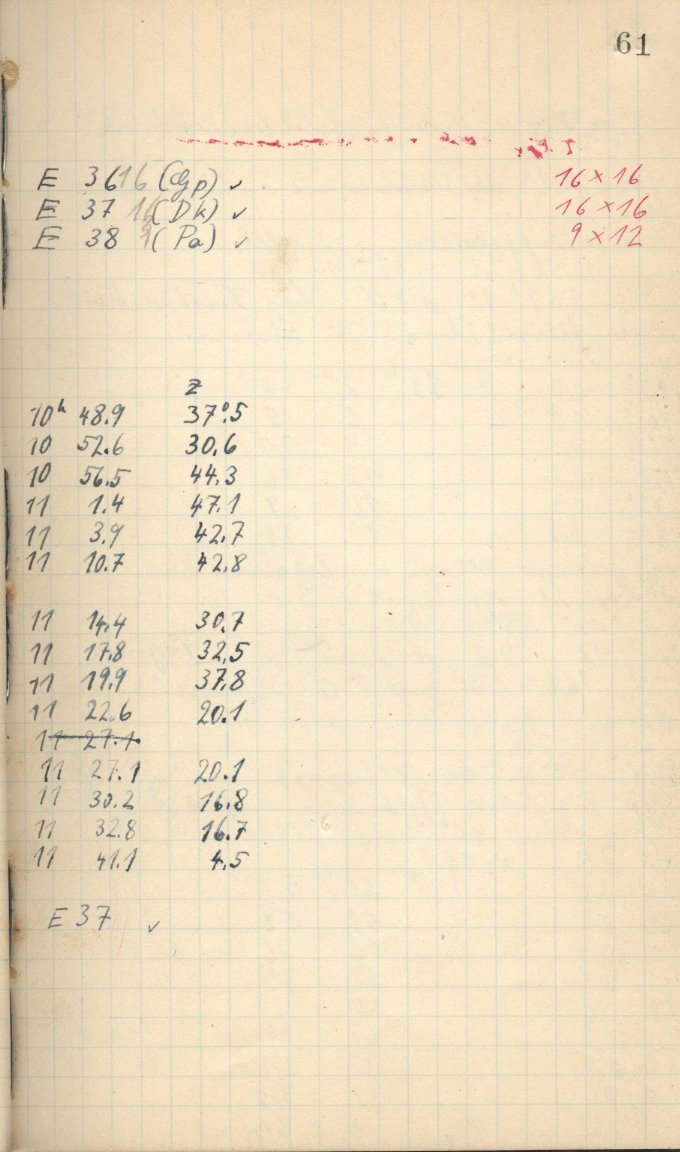 61
E 36 16 (Gp) ✓ 16 × 16
E 37 16 (Dk) ✓ 16 × 16
E 38 9 (Pa) ✓ 9 × 12
z
10h 48.9 37°.5
10 52.6 30.6
10 56.5 44.3
11 1.4 47.1
11 3.9 42.7
11 10.7 42.8
11 14.4 30.7
11 17.8 32.5
11 19.9 37.8
11 22.6 20.1
11 27.1
11 27.1 20.1
11 30.2 16.8
11 32.8 16.7
11 41.1 4.5
E 37 ✓